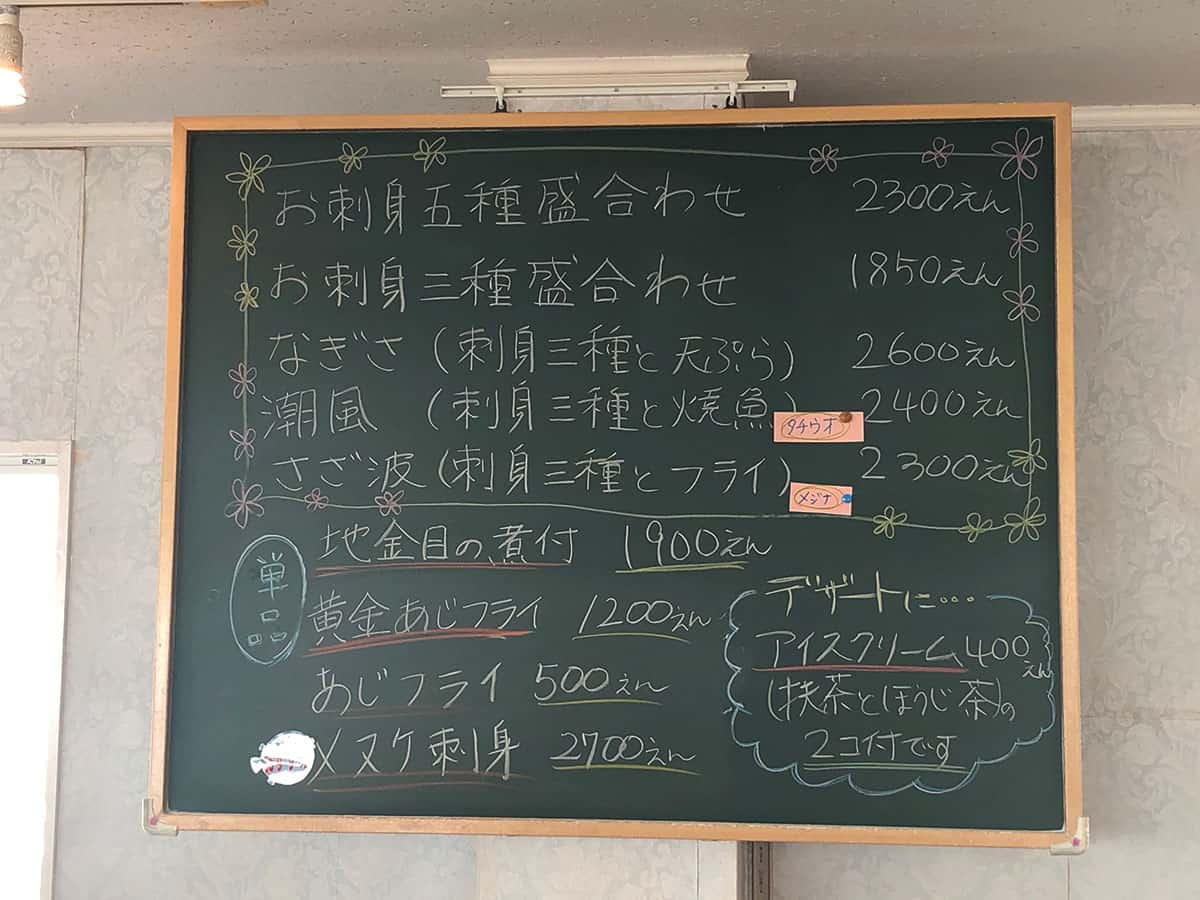 お刺身五種盛合わせ 2300えん
お刺身三種盛合わせ 1850えん
なぎさ(刺身三種と天ぷら) 2600えん
潮風 (刺身三種と焼魚) 2400えん
タチウオ
さざ波(刺身三種とフライ) 2300えん
メジナ
単品
地金目の煮付 1900えん
黄金あじフライ 1200えん
あじフライ 500えん
メヌケ刺身 2700えん
デザートに…
アイスクリーム400えん
(抹茶とほうじ茶)の
2コ付です